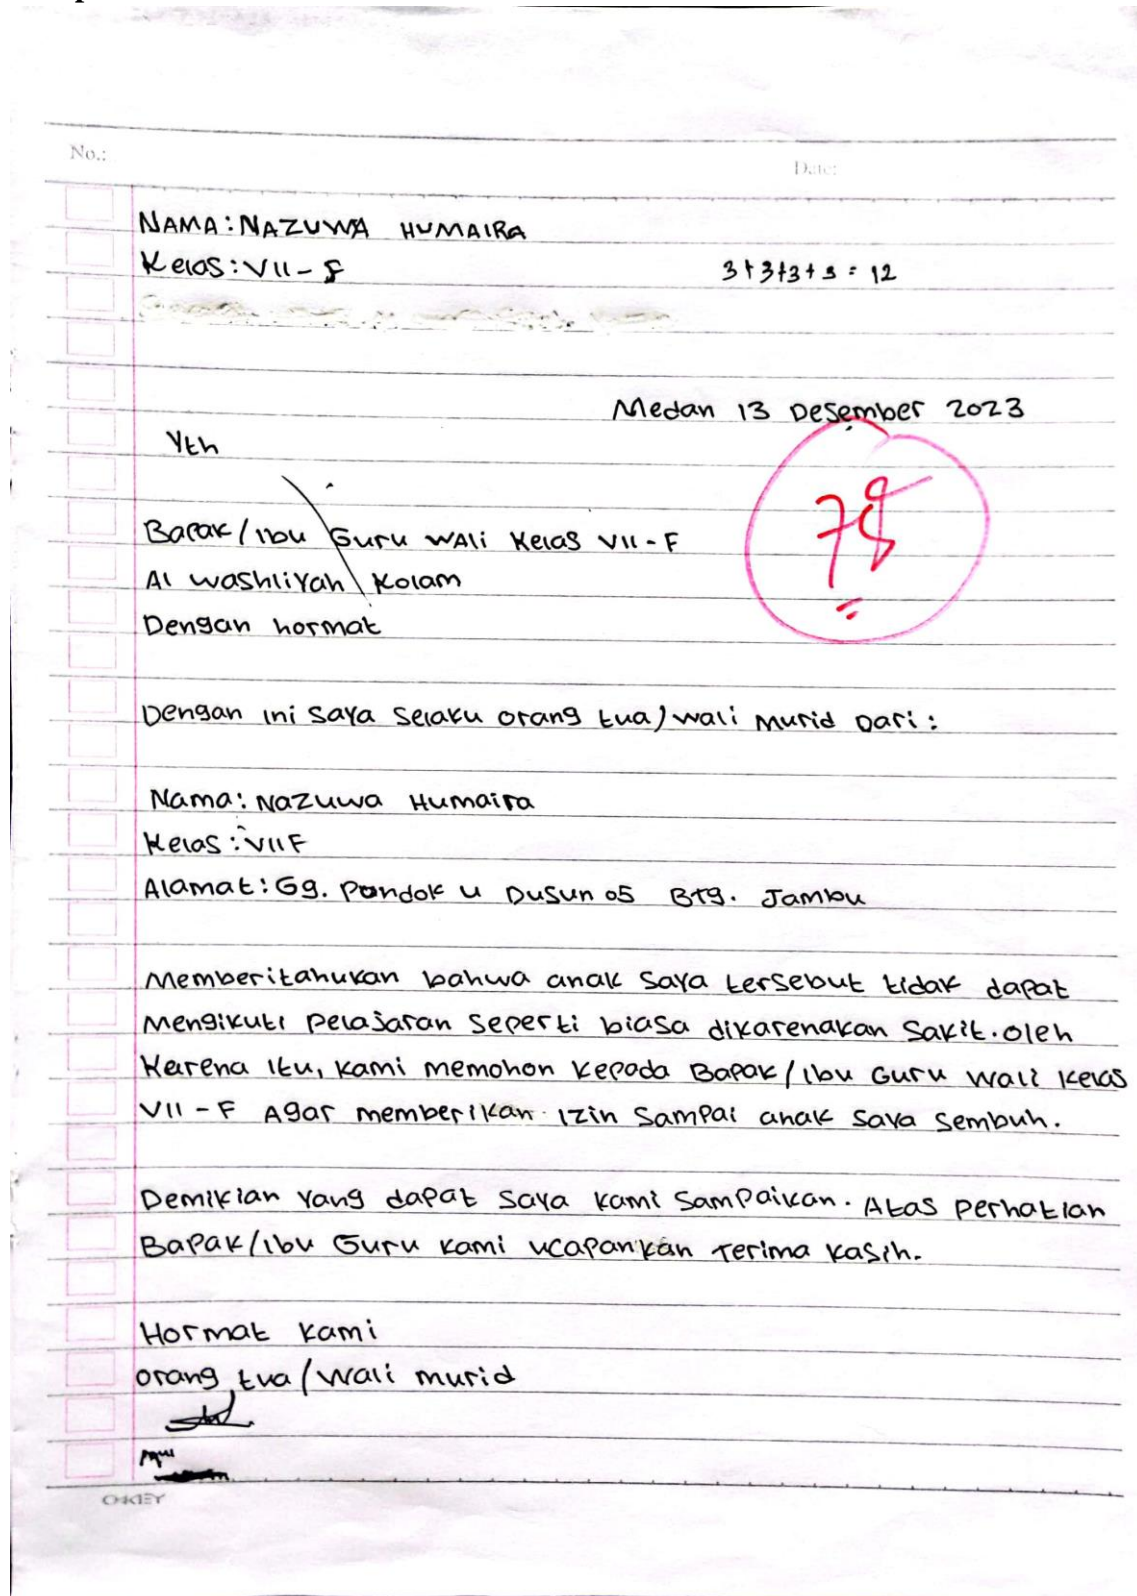 No.:
Date:
NAMA: NAZUWA HUMAIRA
Kelas: VII - F
3+3+3+3 = 12
Medan 13 Desember 2023
Yth
78
Bapak/Ibu Guru WALi Kelas VII - F
Al washliyah Kolam
Dengan hormat
Dengan ini saya selaku orang tua/wali murid Dari :
Nama: Nazuwa Humaira
Kelas : VII F
Alamat: Gg. Pondok u Dusun 05 Btg. Jambu
Memberitahukan bahwa anak saya tersebut tidak dapat
mengikuti pelajaran seperti biasa dikarenakan sakit. oleh
Karena itu, kami memohon kepada Bapak/Ibu Guru wali kelas
VII - F Agar memberikan izin sampai anak saya sembuh.
Demikian yang dapat saya kami sampaikan. Atas perhatian
Bapak/Ibu Guru kami ucapankan Terima kasih.
Hormat kami
orang tua/wali murid
OKEY